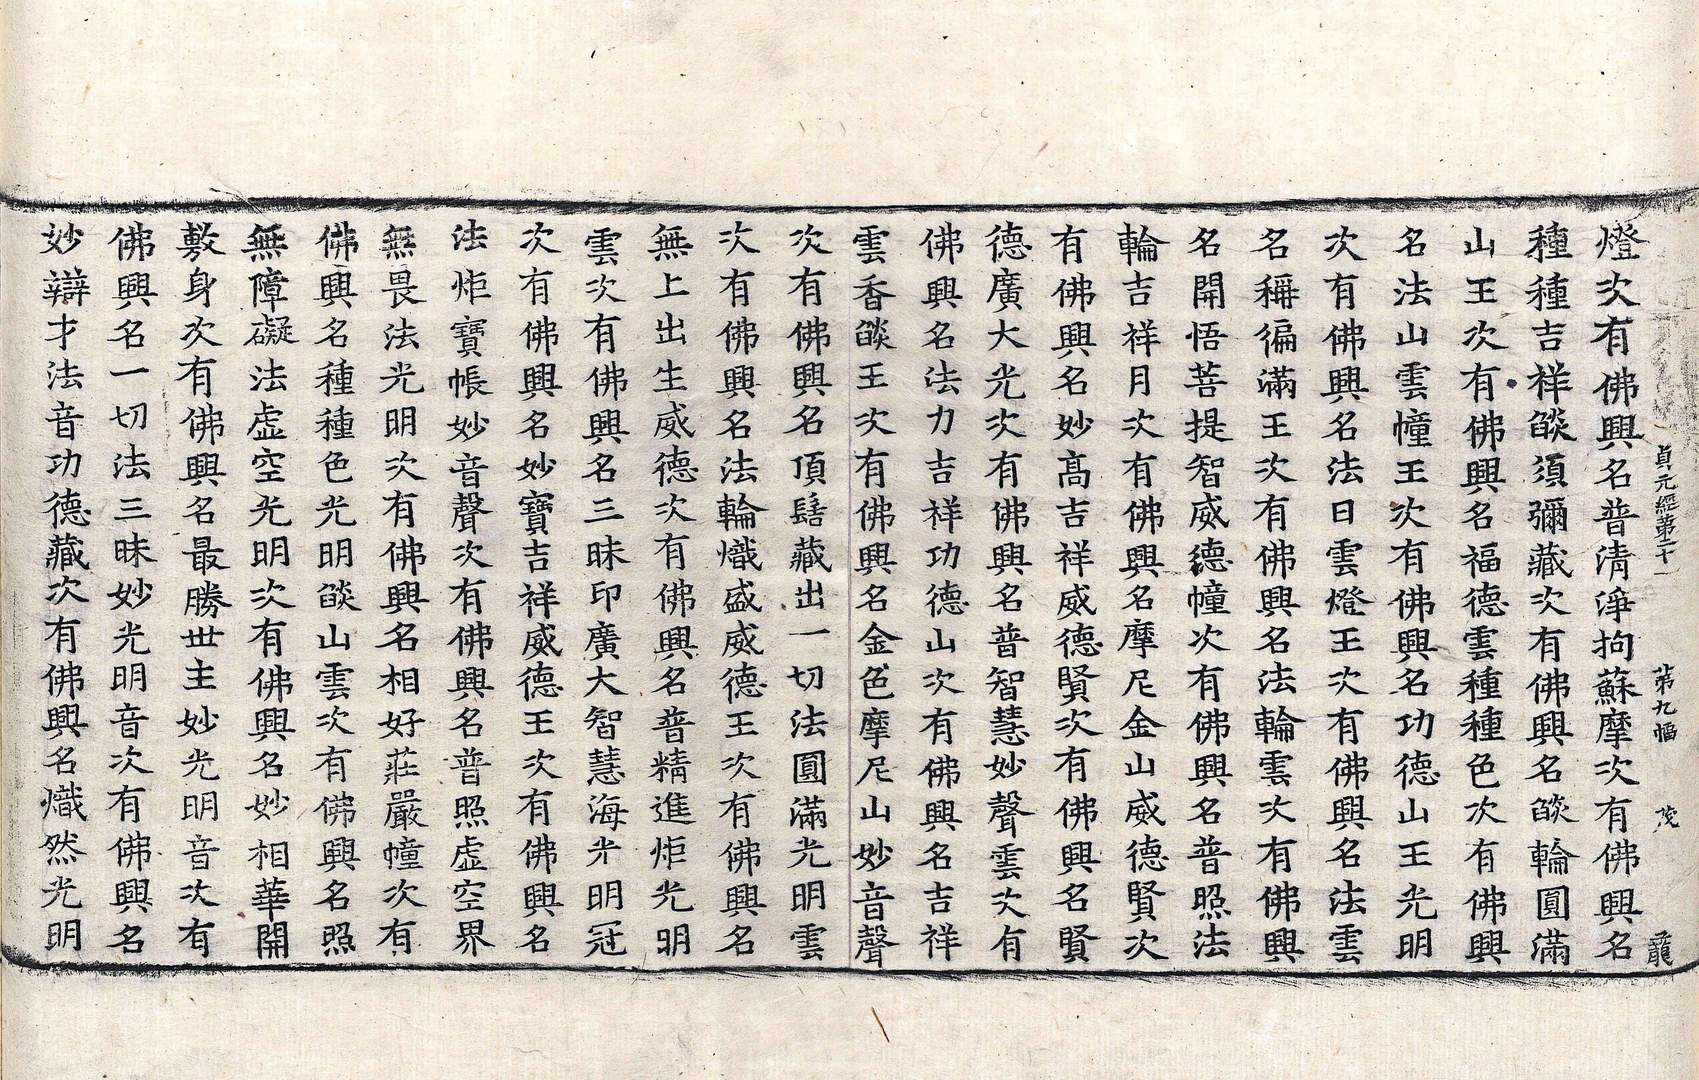 貞元經第二十一 第九幅 茂 龍
燈次有佛興名普清淨拘蘇摩次有佛興名
種種吉祥燄須彌藏次有佛興名燄輪圓滿
山王次有佛興名福德雲種種色次有佛興
名法山雲幢王次有佛興名功德山王光明
次有佛興名法日雲燈王次有佛興名法雲
名稱徧滿王次有佛興名法輪雲次有佛興
名開悟菩提智威德幢次有佛興名普照法
輪吉祥月次有佛興名摩尼金山威德賢次
有佛興名妙高吉祥威德賢次有佛興名賢
德廣大光次有佛興名普智慧妙聲雲次有
佛興名法力吉祥功德山次有佛興名吉祥
雲香燄王次有佛興名金色摩尼山妙音聲
次有佛興名頂髻藏出一切法圓滿光明雲
次有佛興名法輪熾盛威德王次有佛興名
無上出生威德次有佛興名普精進炬光明
雲次有佛興名三昧印廣大智慧海光明冠
次有佛興名妙寶吉祥威德王次有佛興名
法炬寶帳妙音聲次有佛興名普照虛空界
無畏法光明次有佛興名相好莊嚴幢次有
佛興名種種色光明燄山雲次有佛興名照
無障礙法虛空光明次有佛興名妙相華開
敷身次有佛興名最勝世主妙光明音次有
佛興名一切法三昧妙光明音次有佛興名
妙辯才法音功德藏次有佛興名熾然光明